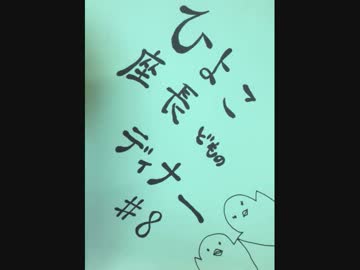 ひよこ
座長
どもの
ディナー
#8